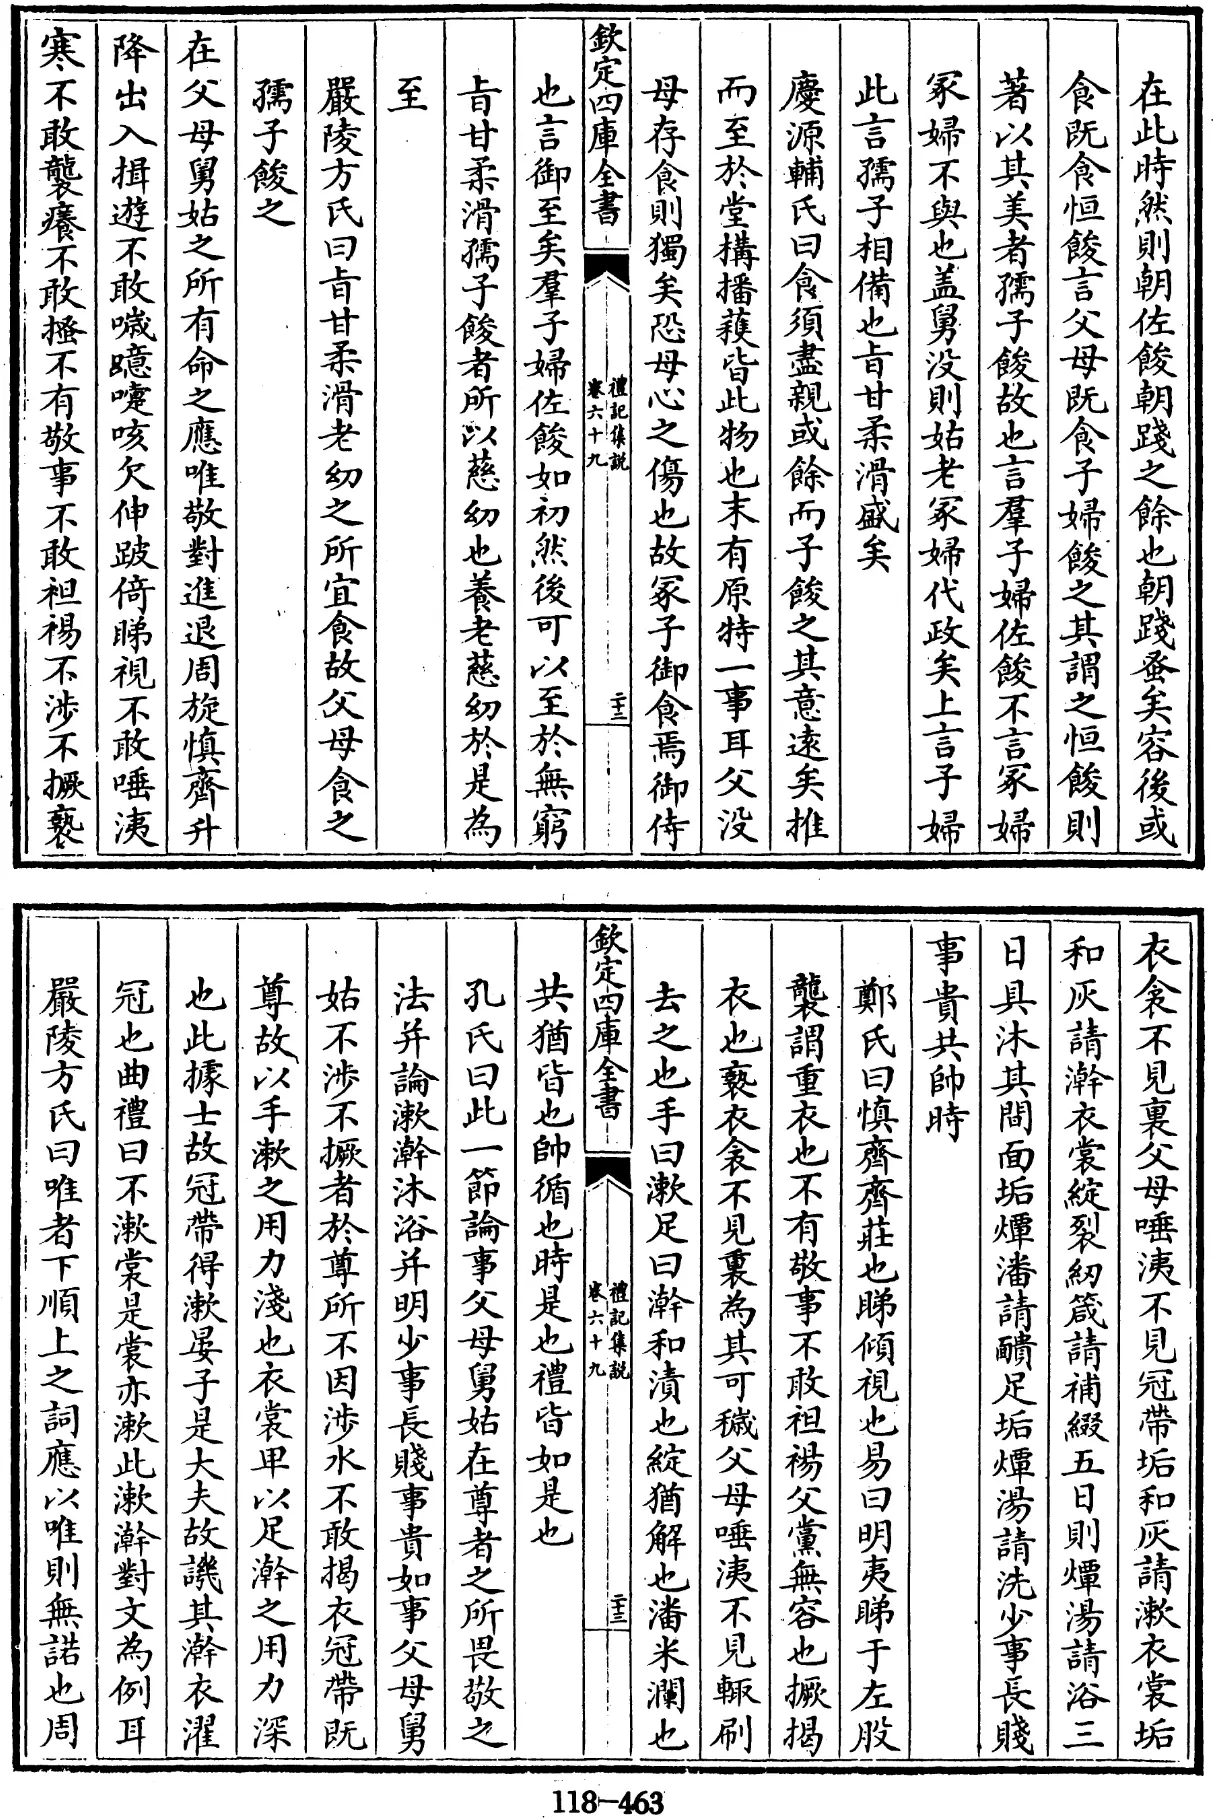 在此時然則朝佐餕朝踐之餘也朝踐蚤矣容後或
食既食恒餕言父母既食子婦餕之其謂之恒餕則
著以其美者孺子餕故也言羣子婦佐餕不言冢婦
冢婦不與也盖舅没則姑老冢婦代政矣上言子婦
此言孺子相備也㫖甘柔滑盛矣
慶源輔氏曰食須盡親或餘而子餕之其意逺矣推
而至於堂構播穫皆此物也末有原特一事耳父没
母存食則獨矣恐母心之傷也故冢子御食焉御侍
欽定四庫全書
禮記集説
卷六十九
二十二
也言御至矣羣子婦佐餕如初然後可以至於無窮
㫖甘柔滑孺子餕者所以慈幼也養老慈幼於是為
至
嚴陵方氏曰㫖甘柔滑老幼之所宜食故父母食之
孺子餕之
在父母舅姑之所有命之應唯敬對進退周旋慎齊升
降出入揖遊不敢噦噫嚏咳欠伸跛倚睇視不敢唾洟
寒不敢襲癢不敢搔不有敬事不敢袒裼不渉不撅褻
衣衾不見裏父母唾洟不見冠帶垢和灰請漱衣裳垢
和灰請澣衣裳綻裂紉箴請補綴五日則燂湯請浴三
日具沐其間面垢燂潘請靧足垢燂湯請洗少事長賤
事貴共帥時
鄭氏曰慎齊齊莊也睇傾視也易曰明夷睇于左股
襲謂重衣也不有敬事不敢袒裼父黨無容也撅揭
衣也褻衣衾不見裏為其可穢父母唾洟不見輙刷
去之也手曰漱足曰澣和漬也綻猶解也潘米瀾也
欽定四庫全書
禮記集説
卷六十九
二十三
共猶皆也帥循也時是也禮皆如是也
孔氏曰此一節論事父母舅姑在尊者之所畏敬之
法并論漱澣沐浴并明少事長賤事貴如事父母舅
姑不渉不撅者於尊所不因渉水不敢揭衣冠帶既
尊故以手漱之用力淺也衣裳卑以足澣之用力深
也此據士故冠帶得漱晏子是大夫故譏其澣衣濯
冠也曲禮曰不漱裳是裳亦漱此漱澣對文為例耳
嚴陵方氏曰唯者下順上之詞應以唯則無諾也周
118-463